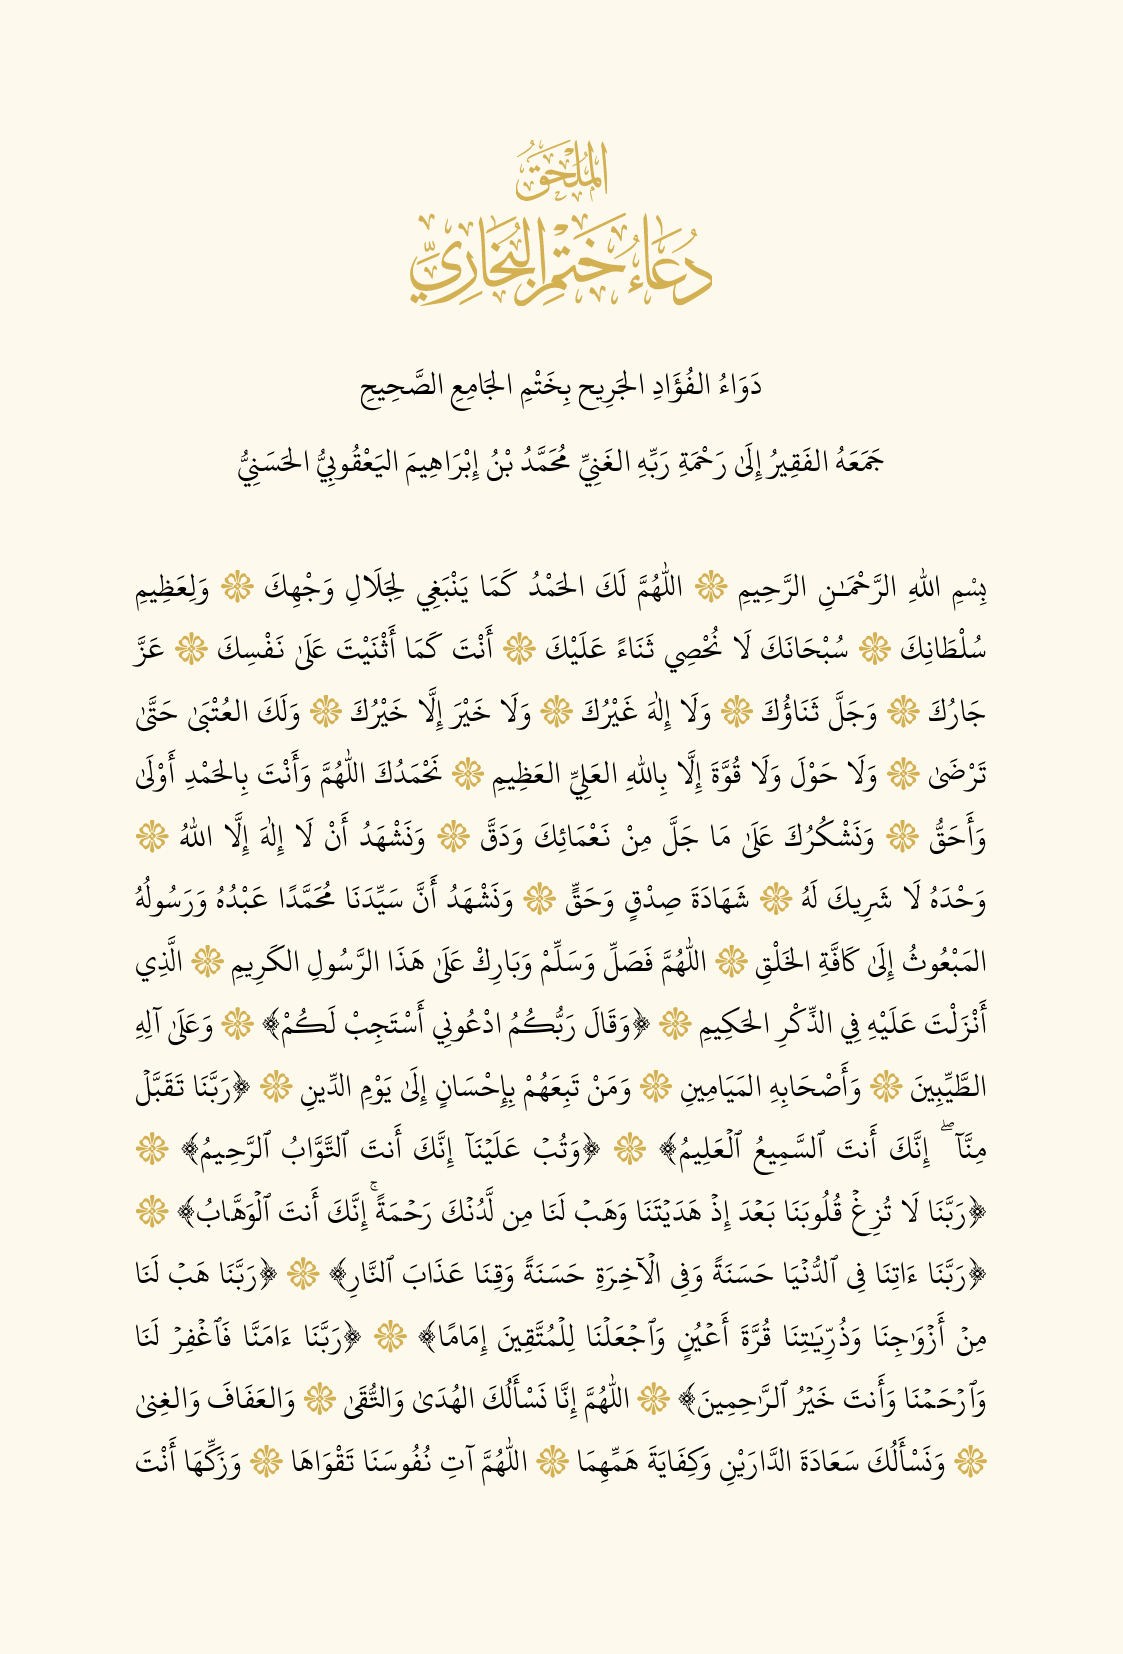 المُلْحَقُ
دُعَاءُ خَتْمِ البُخَارِيِّ
دَوَاءُ الفُؤَادِ الجَرِيحِ بِخَتْمِ الجَامِعِ الصَّحِيحِ
جَمَعَهُ الفَقِيرُ إِلَىٰ رَحْمَةِ رَبِّهِ الغَنِيِّ مُحَمَّدُ بْنُ إِبْرَاهِيمَ اليَعْقُوبِيُّ الحَسَنِيُّ
بِسْمِ اللهِ الرَّحْمَـٰنِ الرَّحِيمِ ❁ اللّٰهُمَّ لَكَ الحَمْدُ كَمَا يَنْبَغِي لِجَلَالِ وَجْهِكَ ❁ وَلِعَظِيمِ
سُلْطَانِكَ ❁ سُبْحَانَكَ لَا نُحْصِي ثَنَاءً عَلَيْكَ ❁ أَنْتَ كَمَا أَثْنَيْتَ عَلَىٰ نَفْسِكَ ❁ عَزَّ
جَارُكَ ❁ وَجَلَّ ثَنَاؤُكَ ❁ وَلَا إِلٰهَ غَيْرُكَ ❁ وَلَا خَيْرَ إِلَّا خَيْرُكَ ❁ وَلَكَ العُتْبَىٰ حَتَّىٰ
تَرْضَىٰ ❁ وَلَا حَوْلَ وَلَا قُوَّةَ إِلَّا بِاللهِ العَلِيِّ العَظِيمِ ❁ نَحْمَدُكَ اللّٰهُمَّ وَأَنْتَ بِالحَمْدِ أَوْلَىٰ
وَأَحَقُّ ❁ وَنَشْكُرُكَ عَلَىٰ مَا جَلَّ مِنْ نَعْمَائِكَ وَدَقَّ ❁ وَنَشْهَدُ أَنْ لَا إِلٰهَ إِلَّا اللهُ ❁
وَحْدَهُ لَا شَرِيكَ لَهُ ❁ شَهَادَةَ صِدْقٍ وَحَقٍّ ❁ وَنَشْهَدُ أَنَّ سَيِّدَنَا مُحَمَّدًا عَبْدُهُ وَرَسُولُهُ
المَبْعُوثُ إِلَىٰ كَافَّةِ الخَلْقِ ❁ اللّٰهُمَّ فَصَلِّ وَسَلِّمْ وَبَارِكْ عَلَىٰ هَذَا الرَّسُولِ الكَرِيمِ ❁ الَّذِي
أَنْزَلْتَ عَلَيْهِ فِي الذِّكْرِ الحَكِيمِ ❁ ﴿وَقَالَ رَبُّكُمُ ادْعُونِي أَسْتَجِبْ لَكُمْ﴾ ❁ وَعَلَىٰ آلِهِ
الطَّيِّبِينَ ❁ وَأَصْحَابِهِ المَيَامِينِ ❁ وَمَنْ تَبِعَهُمْ بِإِحْسَانٍ إِلَىٰ يَوْمِ الدِّينِ ❁ ﴿رَبَّنَا تَقَبَّلۡ
مِنَّآ ۖ إِنَّكَ أَنتَ ٱلسَّمِيعُ ٱلۡعَلِيمُ﴾ ❁ ﴿وَتُبۡ عَلَيۡنَآ إِنَّكَ أَنتَ ٱلتَّوَّابُ ٱلرَّحِيمُ﴾ ❁
﴿رَبَّنَا لَا تُزِغۡ قُلُوبَنَا بَعۡدَ إِذۡ هَدَيۡتَنَا وَهَبۡ لَنَا مِن لَّدُنۡكَ رَحۡمَةً ۚ إِنَّكَ أَنتَ ٱلۡوَهَّابُ﴾ ❁
﴿رَبَّنَا ءَاتِنَا فِى ٱلدُّنۡيَا حَسَنَةً وَفِى ٱلۡآخِرَةِ حَسَنَةً وَقِنَا عَذَابَ ٱلنَّارِ﴾ ❁ ﴿رَبَّنَا هَبۡ لَنَا
مِنۡ أَزۡوَٰجِنَا وَذُرِّيَّـٰتِنَا قُرَّةَ أَعۡيُنٍ وَٱجۡعَلۡنَا لِلۡمُتَّقِينَ إِمَامًا﴾ ❁ ﴿رَبَّنَا ءَامَنَّا فَٱغۡفِرۡ لَنَا
وَٱرۡحَمۡنَا وَأَنتَ خَيۡرُ ٱلرَّٰحِمِينَ﴾ ❁ اللّٰهُمَّ إِنَّا نَسْأَلُكَ الهُدَىٰ وَالتُّقَىٰ ❁ وَالعَفَافَ وَالغِنىٰ
❁ وَنَسْأَلُكَ سَعَادَةَ الدَّارَيْنِ وَكِفَايَةَ هَمِّهِمَا ❁ اللّٰهُمَّ آتِ نُفُوسَنَا تَقْوَاهَا ❁ وَزَكِّهَا أَنْتَ